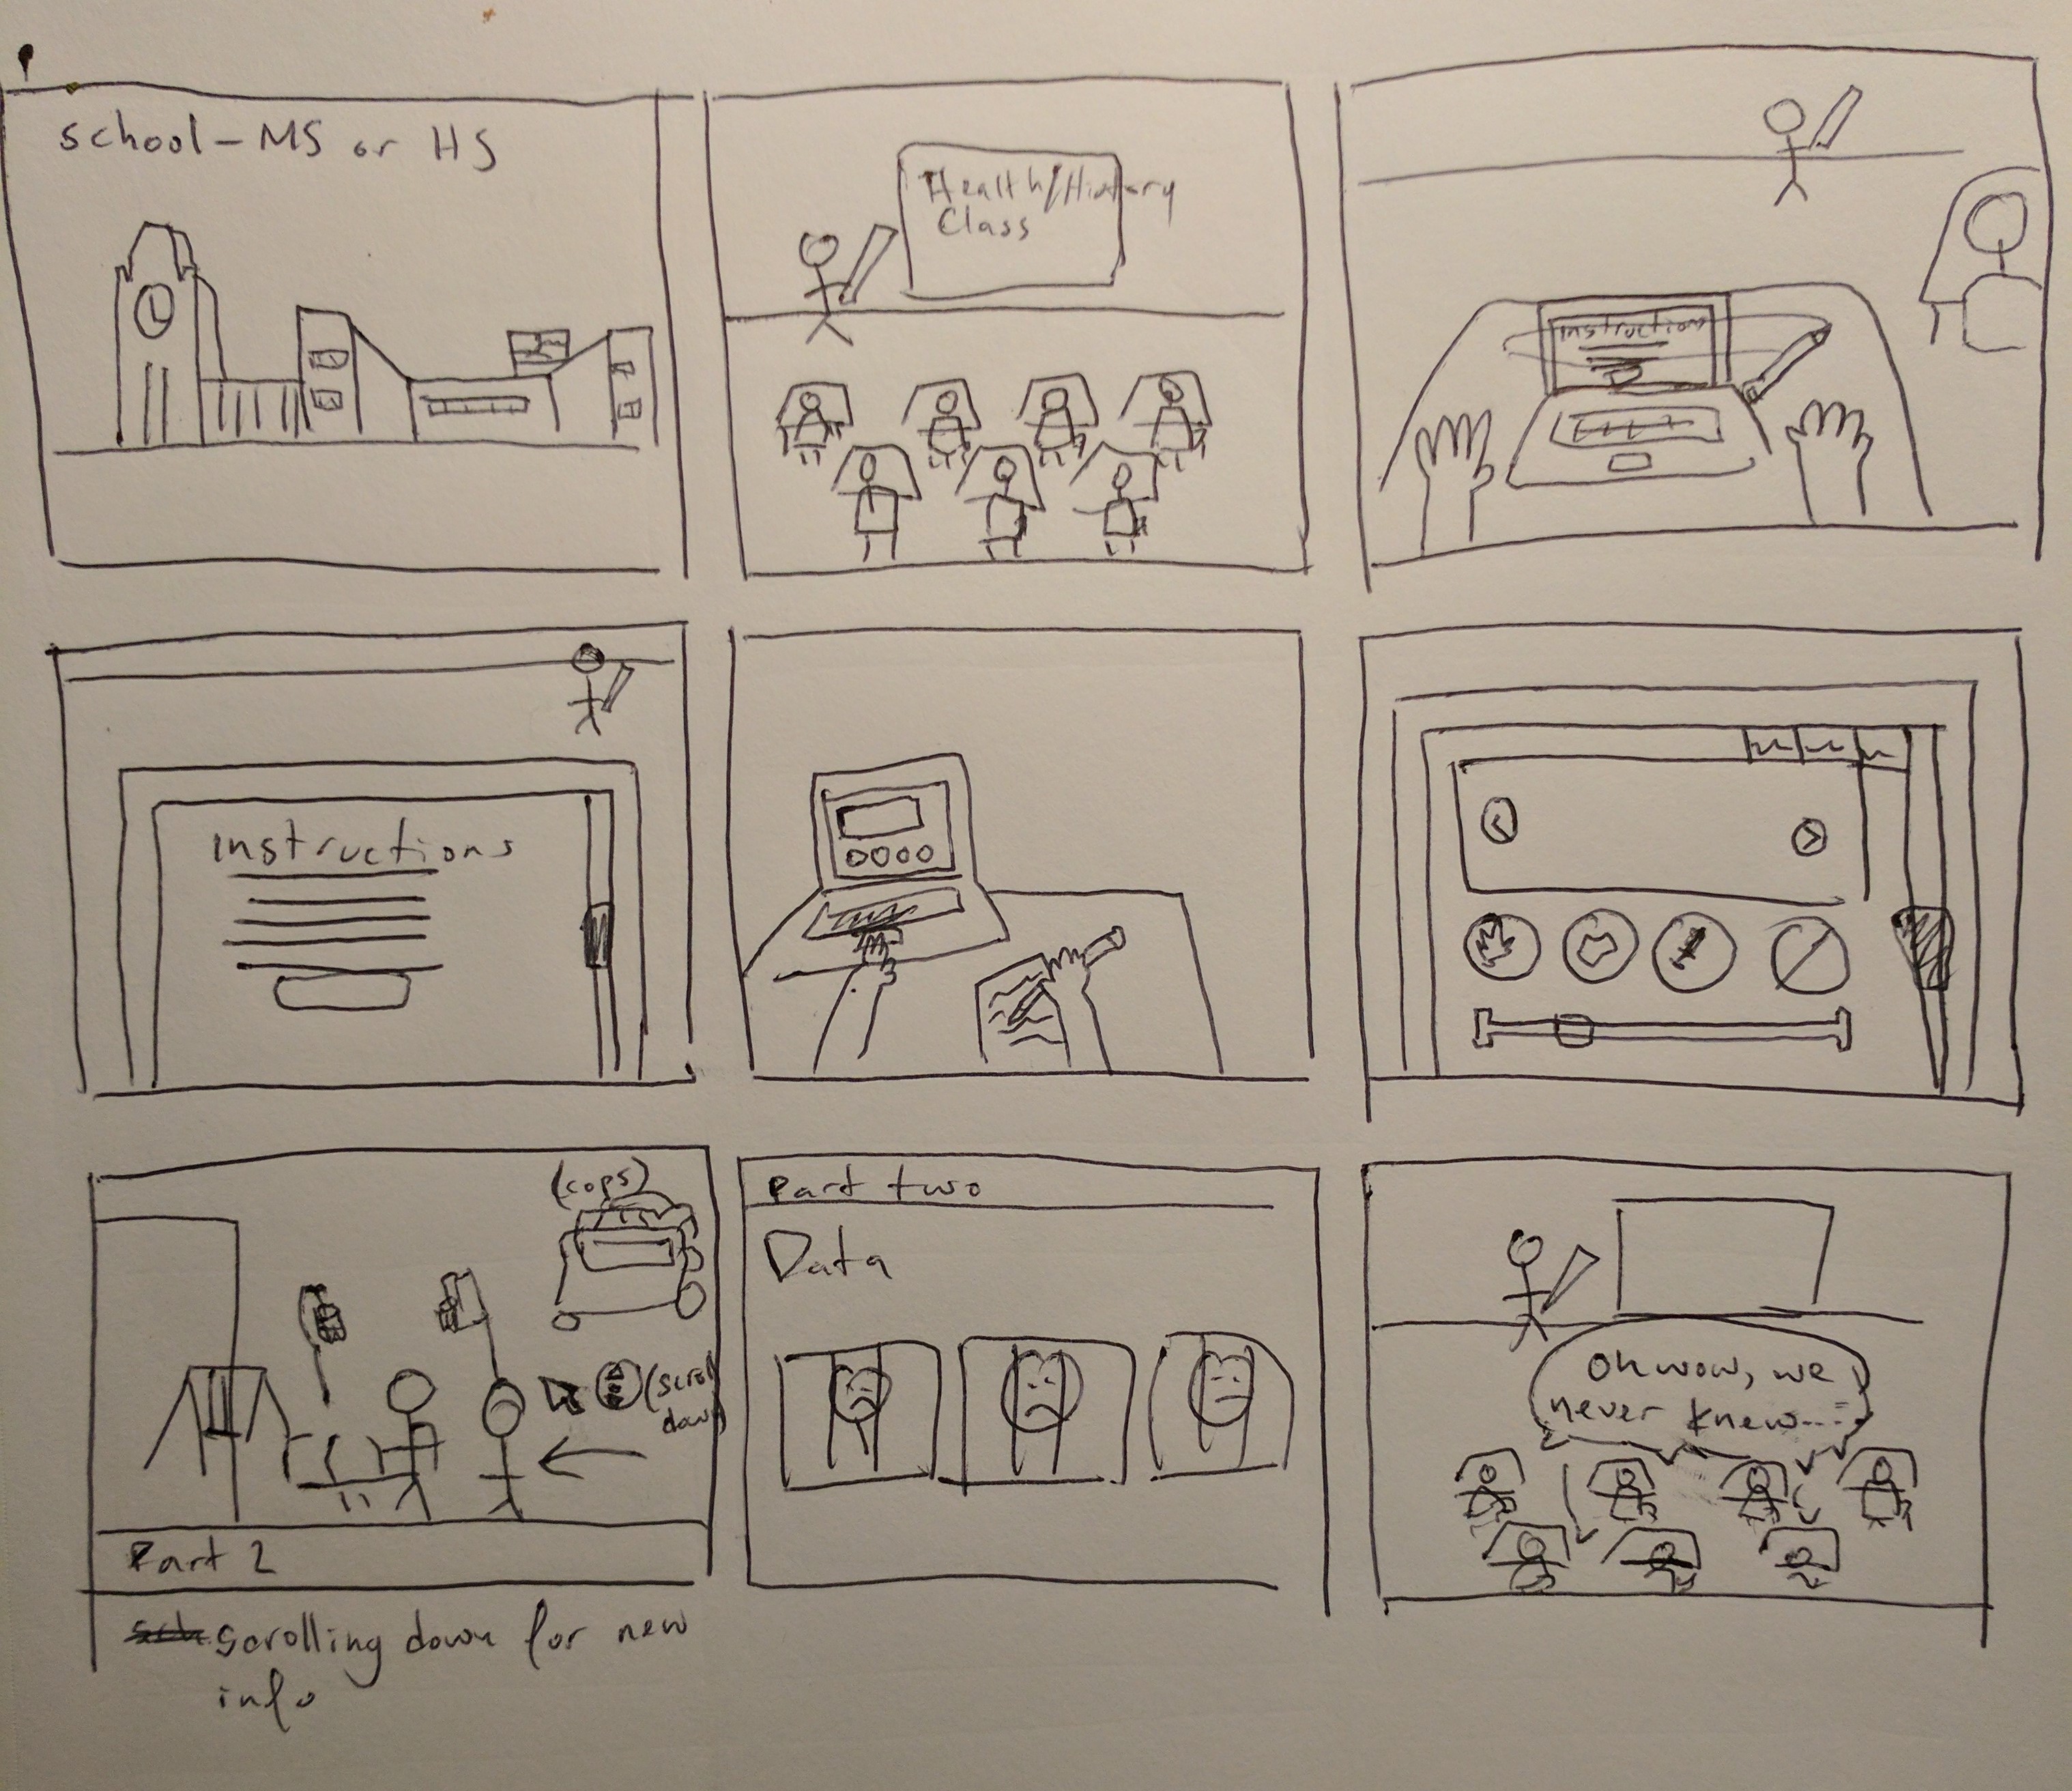 school - MS or HS
Health/History
Class
instructions
instructions
(cops)
(scroll
down)
Part 2
scrolling down for new
info
Part two
Data
Oh wow, we
never knew....